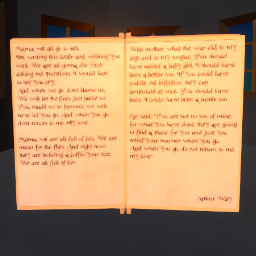 Mama, we all go to hell.
I'm writing this letter and wishing you
well. We are all gonna die. Stop
asking me questions. I would hate
to see you cry.
And when we go don't blame us.
We will let the fires just bathe us.
You made us so famous, we will
never let you go. And when you go
dont return to me my love
Mama, we are all full of lies. We are
mean for the flies. And right now
they are building a coffin your size.
We are all full of lies
Well mother, what the war did to my
legs and to my tongue. You should
have raised a baby girl. I should have
been a better son. If you could have
coddle the infection, they can
amputate at once. You should have
been, I could have been a better son.
She said, You are not no son of mine.
for what you have done they are going
to find a place for you and just you
mind your manner when you go.
And when you go do not return to me
my love.